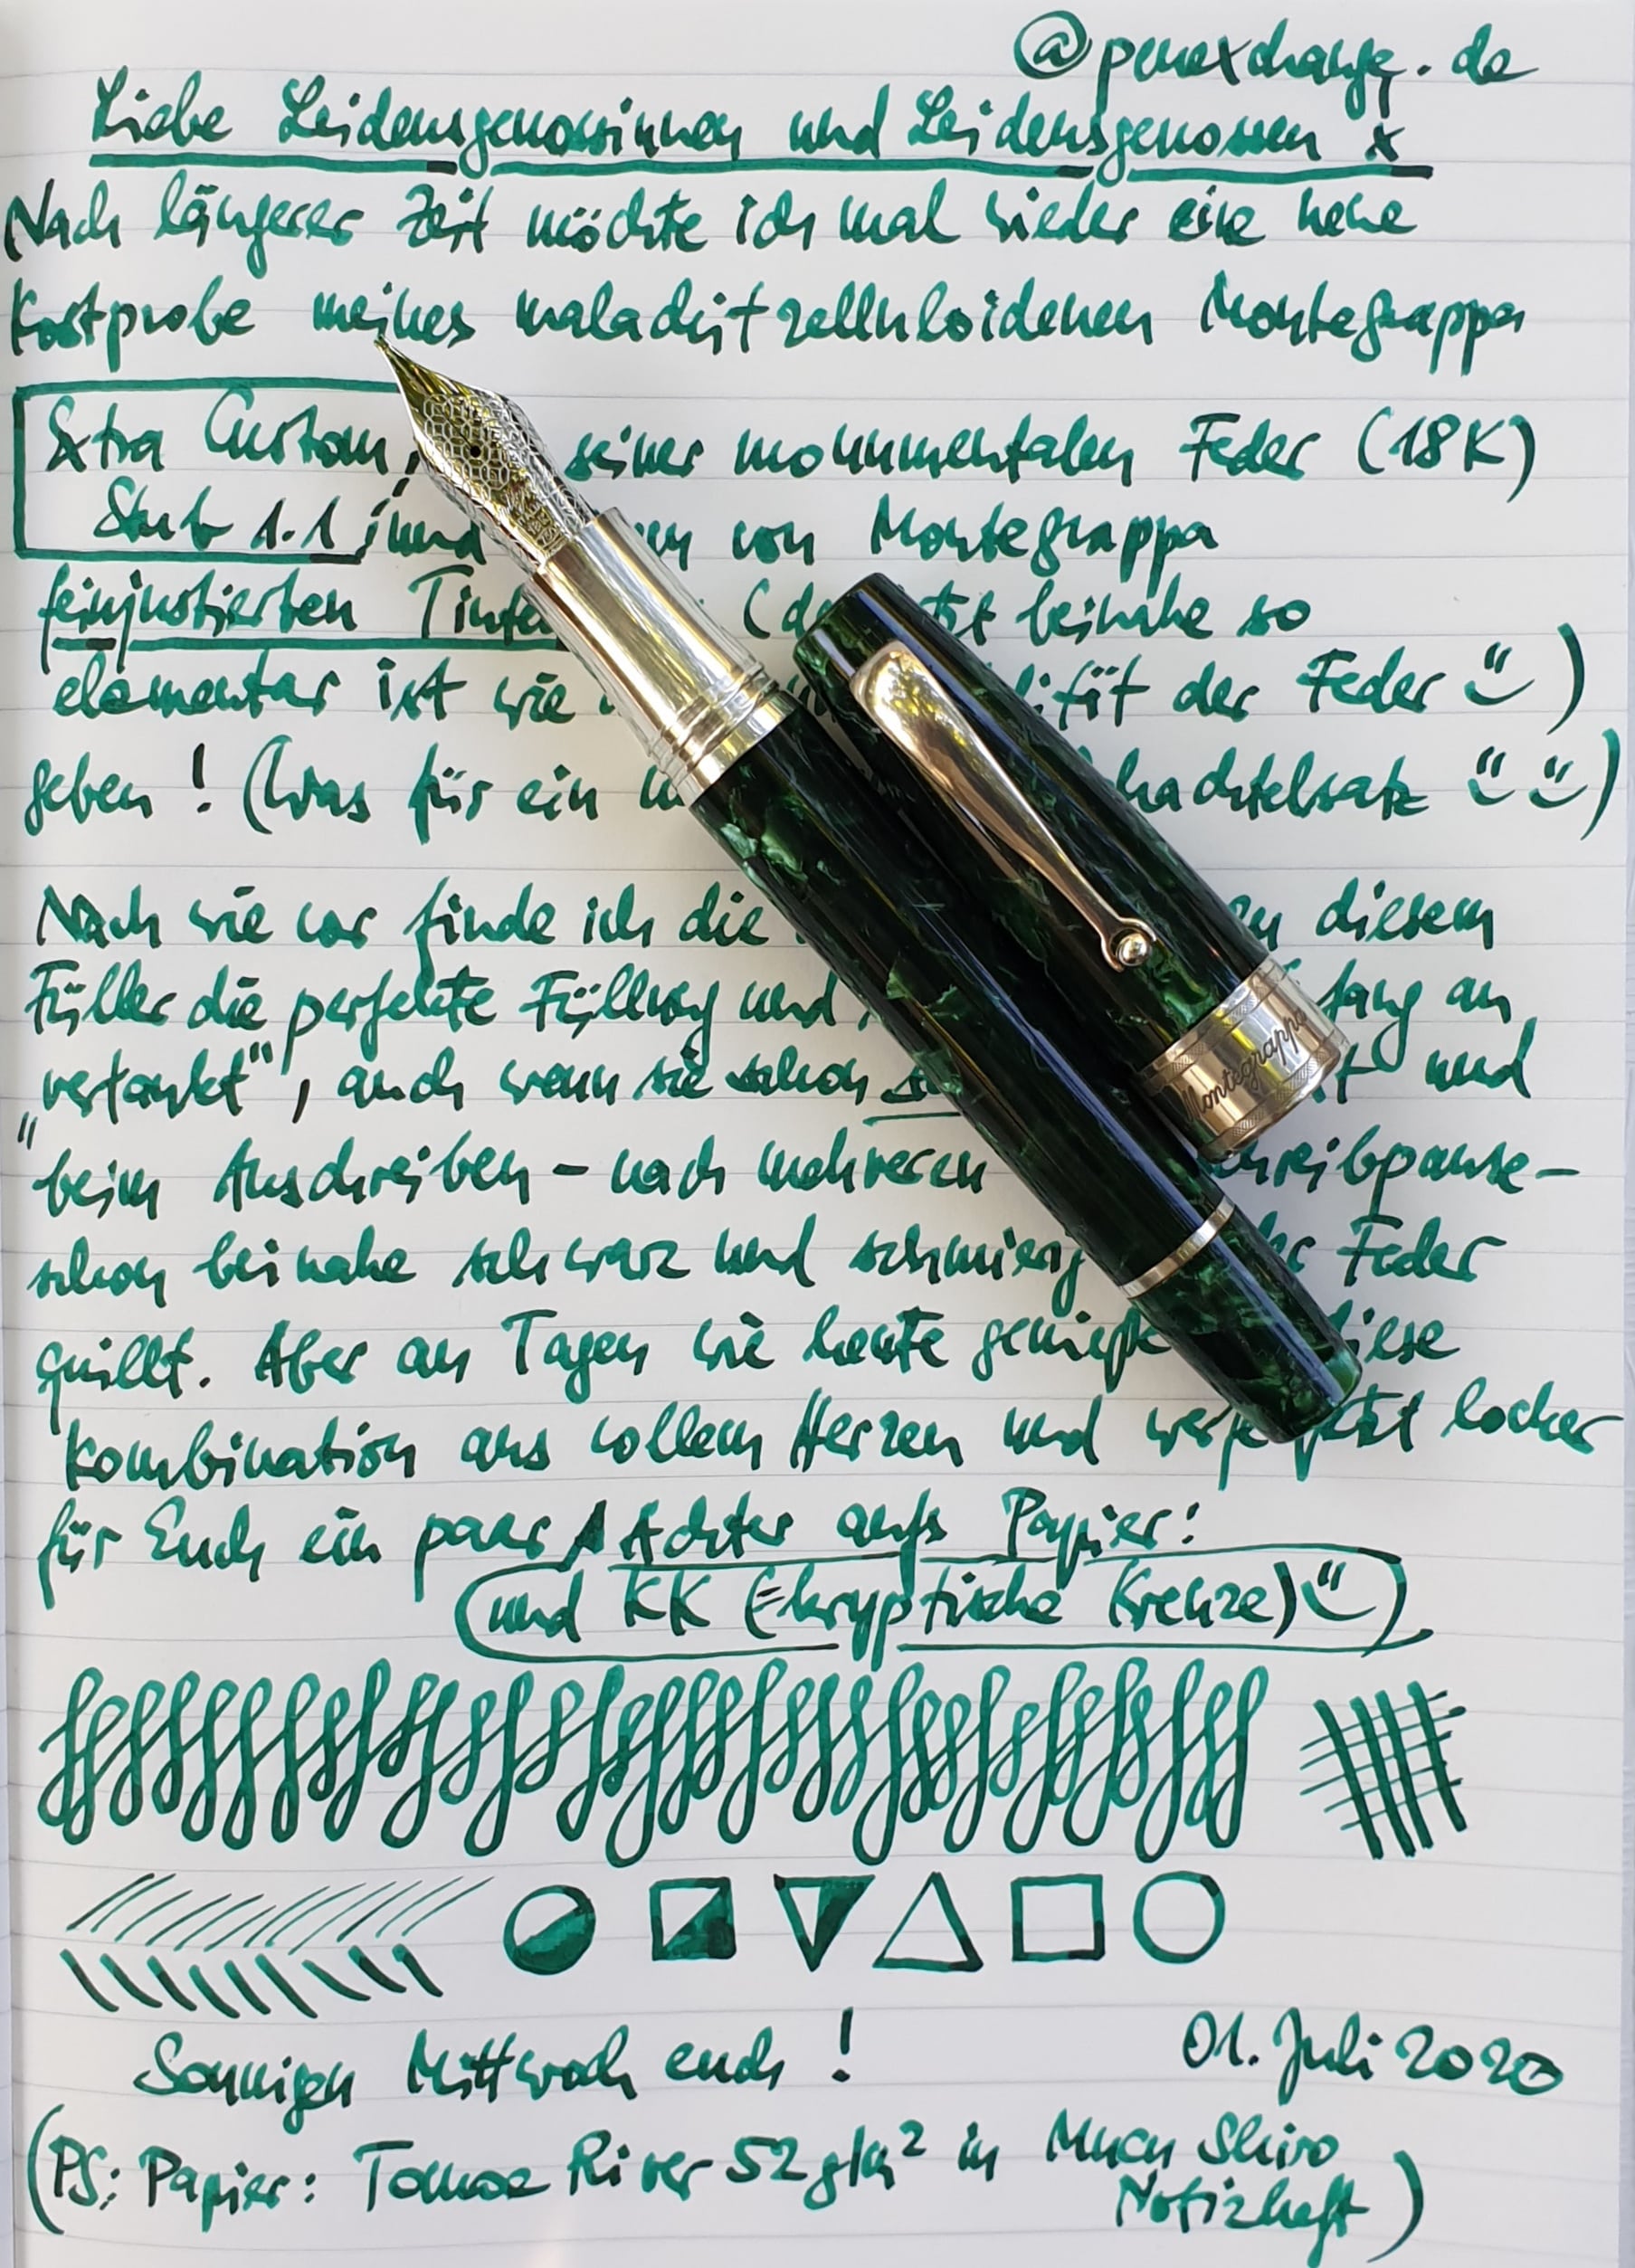 @penexchange.de
Liebe Leidensgenossinnen und Leidensgenossen x
Nach längerer Zeit möchte ich mal wieder eine neue
Kostprobe meines malachitzelluloidenen Montegrappa
Extra Custom, seiner monumentalen Feder (18K)
Stub 1.1 und von Montegrappa
feinjustierten (de beinahe so
elementar ist wie der Feder
geben! (Was für ein
Nach wie vor finde ich die diesem
Füller die perfekte Füllung und an
„vertankt", auch wenn sie schon und
beim Anschreiben – nach mehreren –
schon beinahe schwarz und Feder
quillt. Aber an Tagen wie heute
Kombination aus vollem Herzen und locker
für Euch ein paar Achter aufs Papier:
und KK (=kryptische Kreuze)
Montegrappa
Sonnigen Mittwoch euch!
01. Juli 2020
(PS: Papier: Tomoe River 52 g/m² in Mucu Shiro
Notizheft)